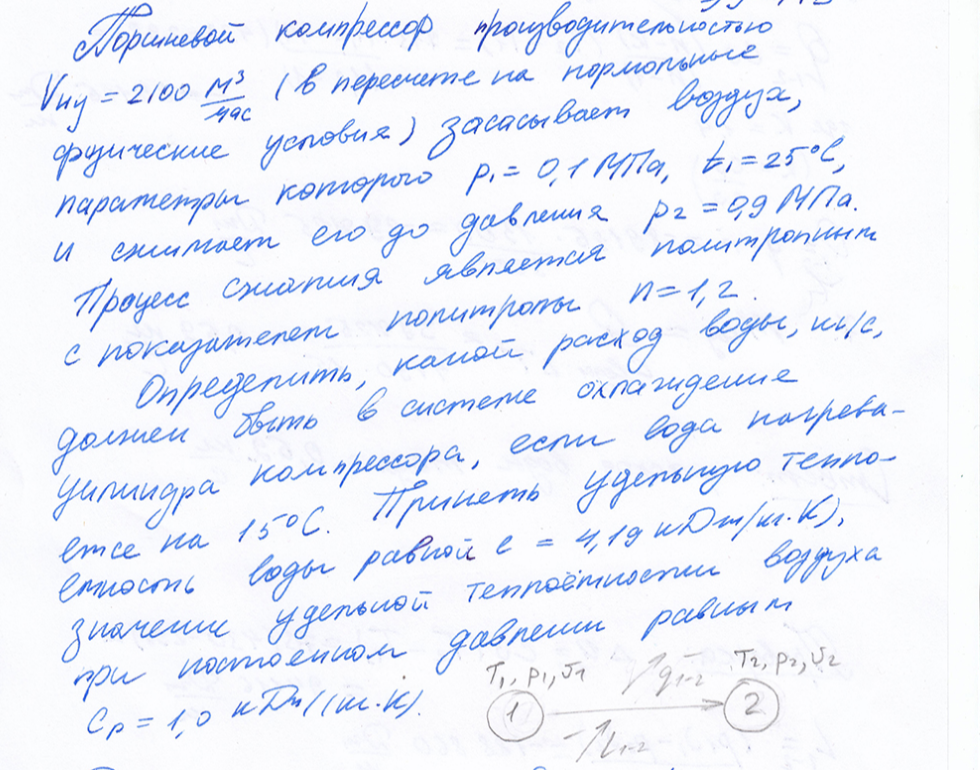 Поршневой компрессор производительностью
Vну = 2100 м³/час (в пересчете на нормальные
физические условия) засасывает воздух,
параметры которого p₁ = 0,1 МПа, t₁ = 25°C,
и сжимает его до давления p₂ = 0,9 МПа.
Процесс сжатия является политропным
с показателем политропы n = 1,2.
Определить, какой расход воды, кг/с,
должен быть в системе охлаждение
цилиндра компрессора, если вода нагрева-
ется на 15°C. Принять удельную тепло-
емкость воды равной c = 4,19 кДж/(кг·К),
значение удельной теплоёмкости воздуха
при постоянном давлении равным
cp = 1,0 кДж/(кг·К).
T₁, p₁, v₁
q₁₋₂
T₂, p₂, v₂
1
2
L₁₋₂